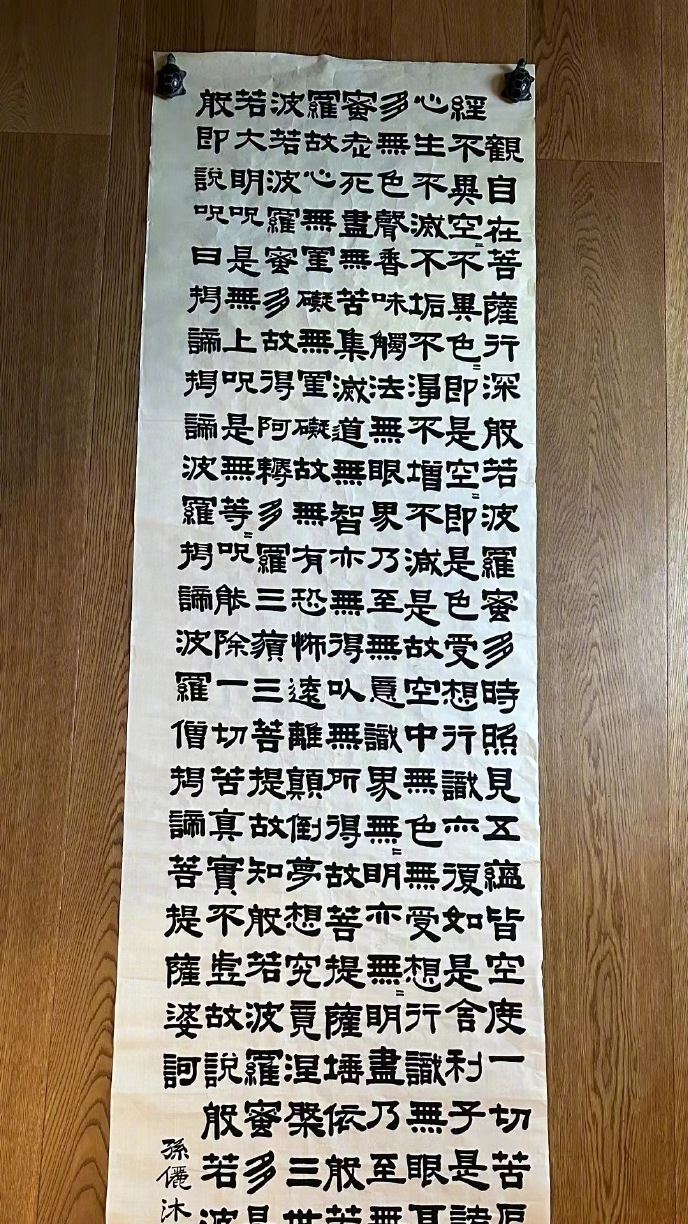 般若波羅蜜多心經
觀自在菩薩行深般若波羅蜜多時照見五蘊皆空度一切苦厄
不異空〻不異色〻即是空〻即是色受想行識亦復如是舍利子是諸
生不滅不垢不淨不增不減是故空中無色無受想行識無眼耳
無色聲香味觸法無眼界乃至無意識界無〻明亦無〻明盡乃至無
老死盡無苦集滅道無智亦無得以無所得故菩提薩埵依般若
故心無罣礙無罣礙故無有恐怖遠離顛倒夢想究竟涅槃三世
若波羅蜜多故得阿耨多羅三藐三菩提故知般若波羅蜜多是
大明呪是無上呪是無等〻呪能除一切苦真實不虛故說般若波
即說呪曰揭諦揭諦波羅揭諦波羅僧揭諦菩提薩婆訶
孫儷沐